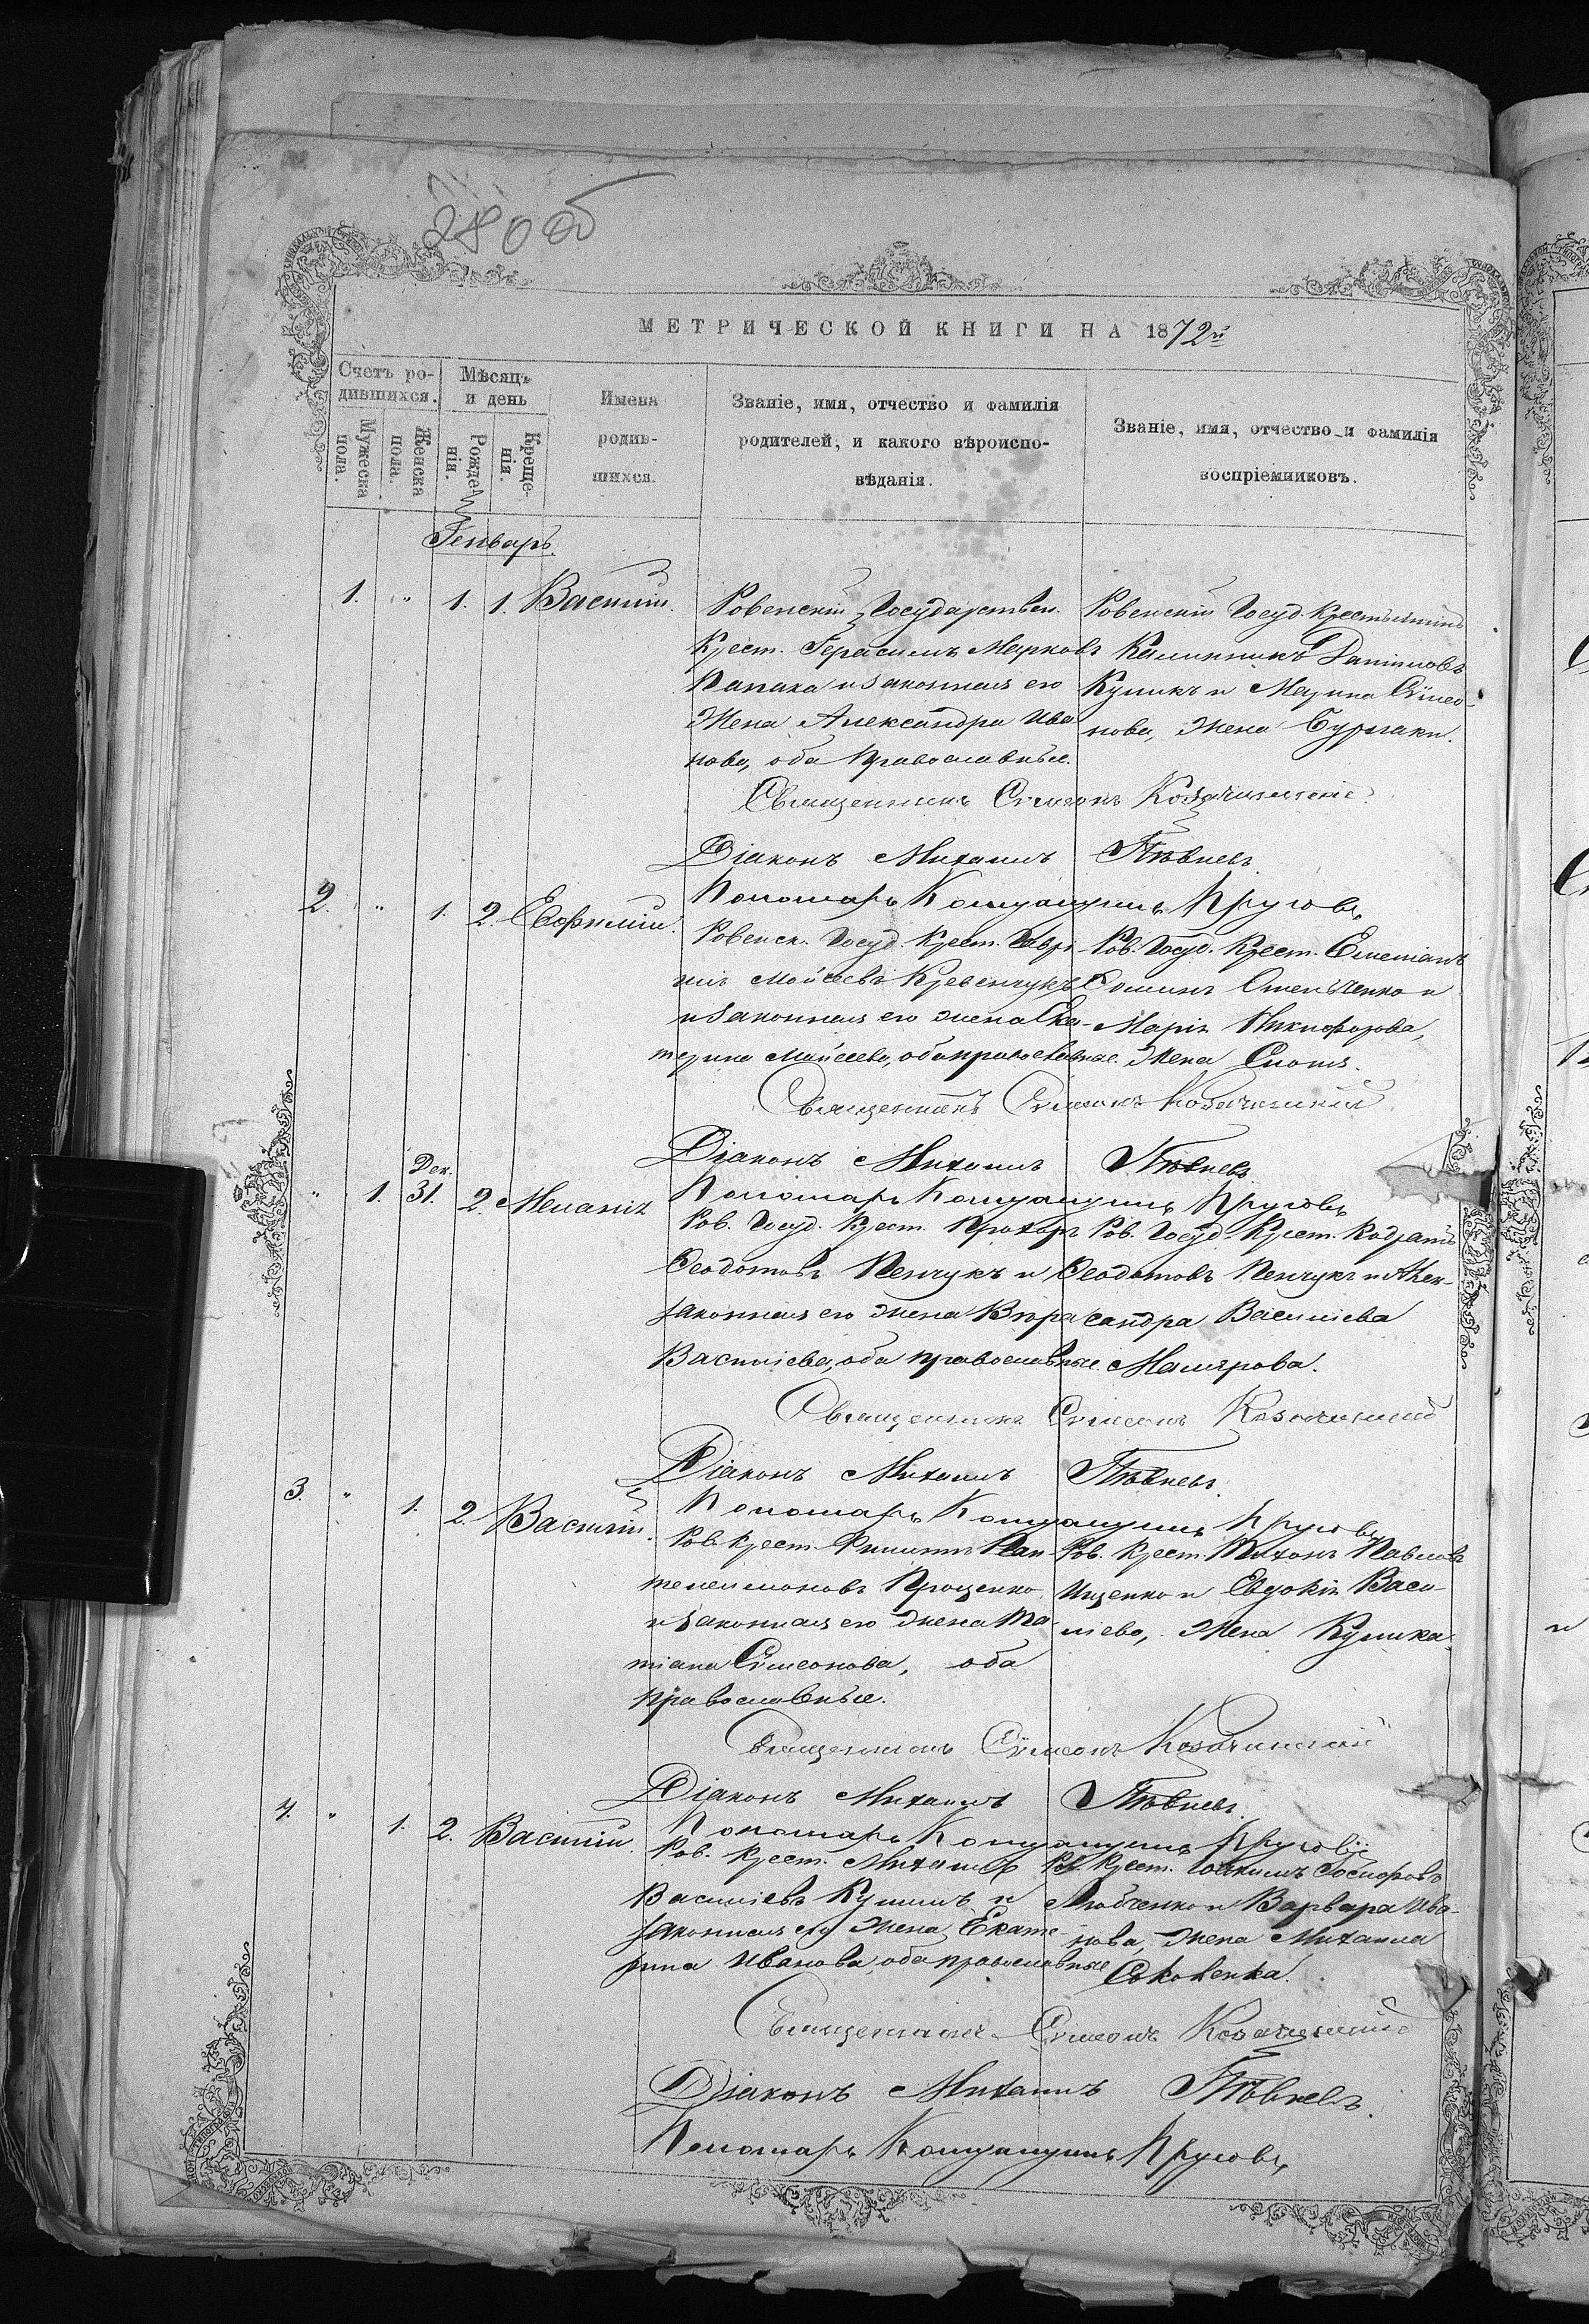 280об
МЕТРИЧЕСКОЙ КНИГИ НА 1872й
Счетъ ро-
дившихся.
Мужеска
пола.
Женска
пола.
Мѣсяцъ
и день
Рожде-
нія.
Креще-
нія.
Имена
родив-
шихся.
Званіе, имя, отчество и фамилія
родителей, и какого вѣроиспо-
вѣданія.
Званіе, имя, отчество и фамилія
воспріемниковъ.
Генварь.
1. " 1. 1. Василій.
Ровенскій Государствен.
Крест. Герасимъ Марковъ
Папака и законная его
Жена Александра Ива-
нова, оба Православные.
Ровенскій Госуд. Крестьянинъ
Калинникъ Даниловъ
Куликъ и Марина Сѵмео-
нова, Жена Бурлаки.
Священникъ Сѵмеонъ Козачинскій
Діаконъ Михаилъ Пѣвневъ.
Пономарь Круговъ
2. " 1. 2. Евфимій.
Ровенск. Госуд. Крест. Гаврі-
илъ Мойсеевъ Кревенчукъ
и законная его жена Ека-
терина Мойсеева, оба православные.
Ров. Госуд. Крест. Емеліанъ
Фоминъ Омельченко и
Марія Никифорова,
Жена Скопа.
Священникъ Сѵмеонъ Козачинскій
Діаконъ Михаилъ Пѣвневъ.
Пономарь Круговъ
" 1. Дек. 31. 2. Меланія
Ров. Госуд. Крест. Прохоръ
Ѳеодотовъ Пенчукъ и
законная его жена Вѣра
Васильева, оба православные.
Ров. Госуд. Крест. Кодратъ
Ѳеодотовъ Пенчукъ и Алек-
сандра Васильева
Малярова.
Священникъ Сѵмеонъ Козачинскій
Діаконъ Михаилъ Пѣвневъ.
Пономарь Круговъ
3. " 1. 2. Василій.
Ров. Крест. Филиппъ Пан-
телеимоновъ Проценко
и законная его жена Та-
тіана Сѵмеонова, оба
православные.
Ров. Крест. Тихонъ Павловъ
Ищенко и Евдокія Васи-
ліева, Жена Кулика.
Священникъ Сѵмеонъ Козачинскій
Діаконъ Михаилъ Пѣвневъ.
Пономарь Круговъ
4. " 1. 2. Василій.
Ров. Крест. Михаилъ
Василіевъ Куликъ и
законная его Жена Екате-
рина Иванова, оба православные
Ров. Крест. Іоакимъ
Любченко и Варвара Ива-
нова, жена Михаила
Соколенка.
Священникъ Сѵмеонъ Козачинскій
Діаконъ Михаилъ Пѣвневъ.
Пономарь Круговъ